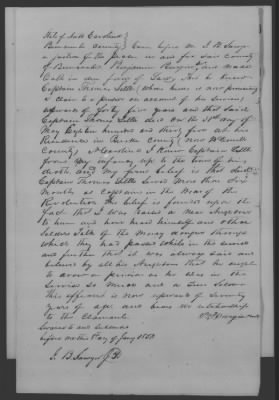 State of North Carolina
Buncombe County Came before me J. B. Sawyer
a Justice of the peace in and for said County
of Buncombe Benjamin and made
Oath in due form of Law, that he knew
Captain Thomas Lytle whose heirs is now praying
to claim a pension on account of his Services
upwards of forty five years and that said
Captain Thomas Lytle died on the day
of May Eighteen hundred and thirty five at his
Residence in Burke County now McDowell
County N Carolina I knew Captain Lytle
from my infancy up to the time of his
death and my firm belief is that said
Captain Thomas Lytle Served more than Six
months as Captain in the War of the
Revolution the belief is founded upon the
fact that I was raised a near Neighbour
to him and have heard himself and other
Soldiers talk of the many dangers through
which they had passed while in the service
and further that it was always said and
believed by all his Neighbors that he ought
to draw a pension as he was in the
Service so much and a true Soldier
this affiant is now upwards of Seventy
years of age and bears no relationship
to the Claimant
Sworn to and subscribed
before me this day of Jany 1853
J. B Sawyer JP